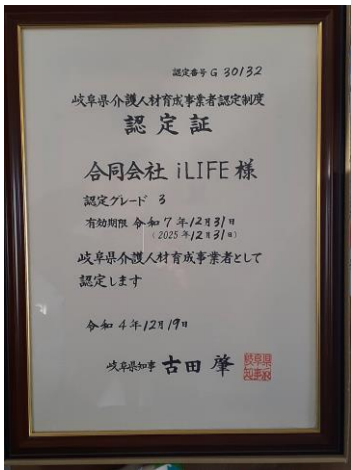 認定番号 G 30132
岐阜県介護人材育成事業者認定制度
認定証
合同会社 iLIFE 様
認定グレード 3
有効期限 令和7年12月31日
(2025年12月31日)
岐阜県介護人材育成事業者として
認定します
令和4年12月19日
岐阜県知事 古田 肇
岐阜県知事印